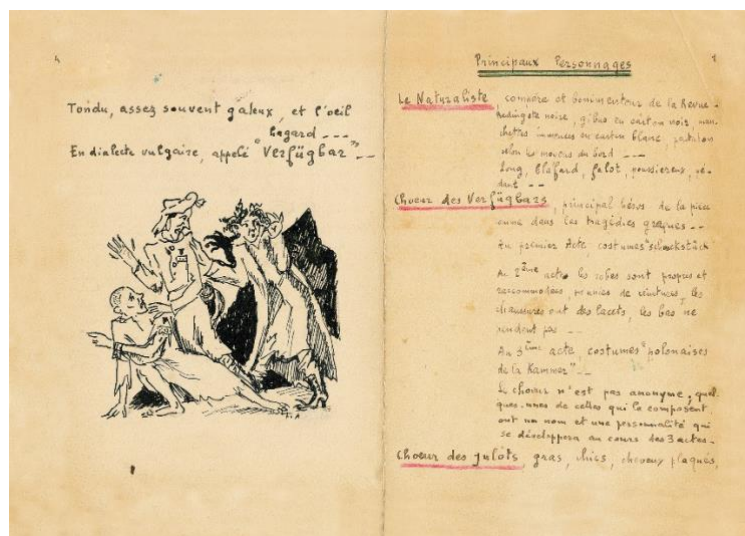 4
Tondu, assez souvent galeux, et l'oeil
hagard ---
En dialecte vulgaire, appelé "Verfügbar" --
T.A
Principaux Personnages
Le Naturaliste, compère et bonimenteur de la Revue -
Redingote noire, gibus en carton noir, man-
chettes immenses en carton blanc, pantalon
selon les moyens du bord ---
Long, blafard, falot, poussiéreux,
Choeur des Verfügbars, principal héros de la pièce
comme dans les tragédies grecques --
Au premier Acte, costumes "schmuckstück"
Au 2ème acte les robes sont propres et
raccommodées, munies de ceintures, les
chaussures ont des lacets, les bas ne
pendent pas --
Au 3ème acte, costumes "polonaises
de la Kammer" --
Le choeur n'est pas anonyme, quel-
ques-unes de celles qui le composent
ont un nom et une personnalité qui
se développera au cours des 3 actes -
Choeur des Julots, gras, chics, cheveux plaqués,